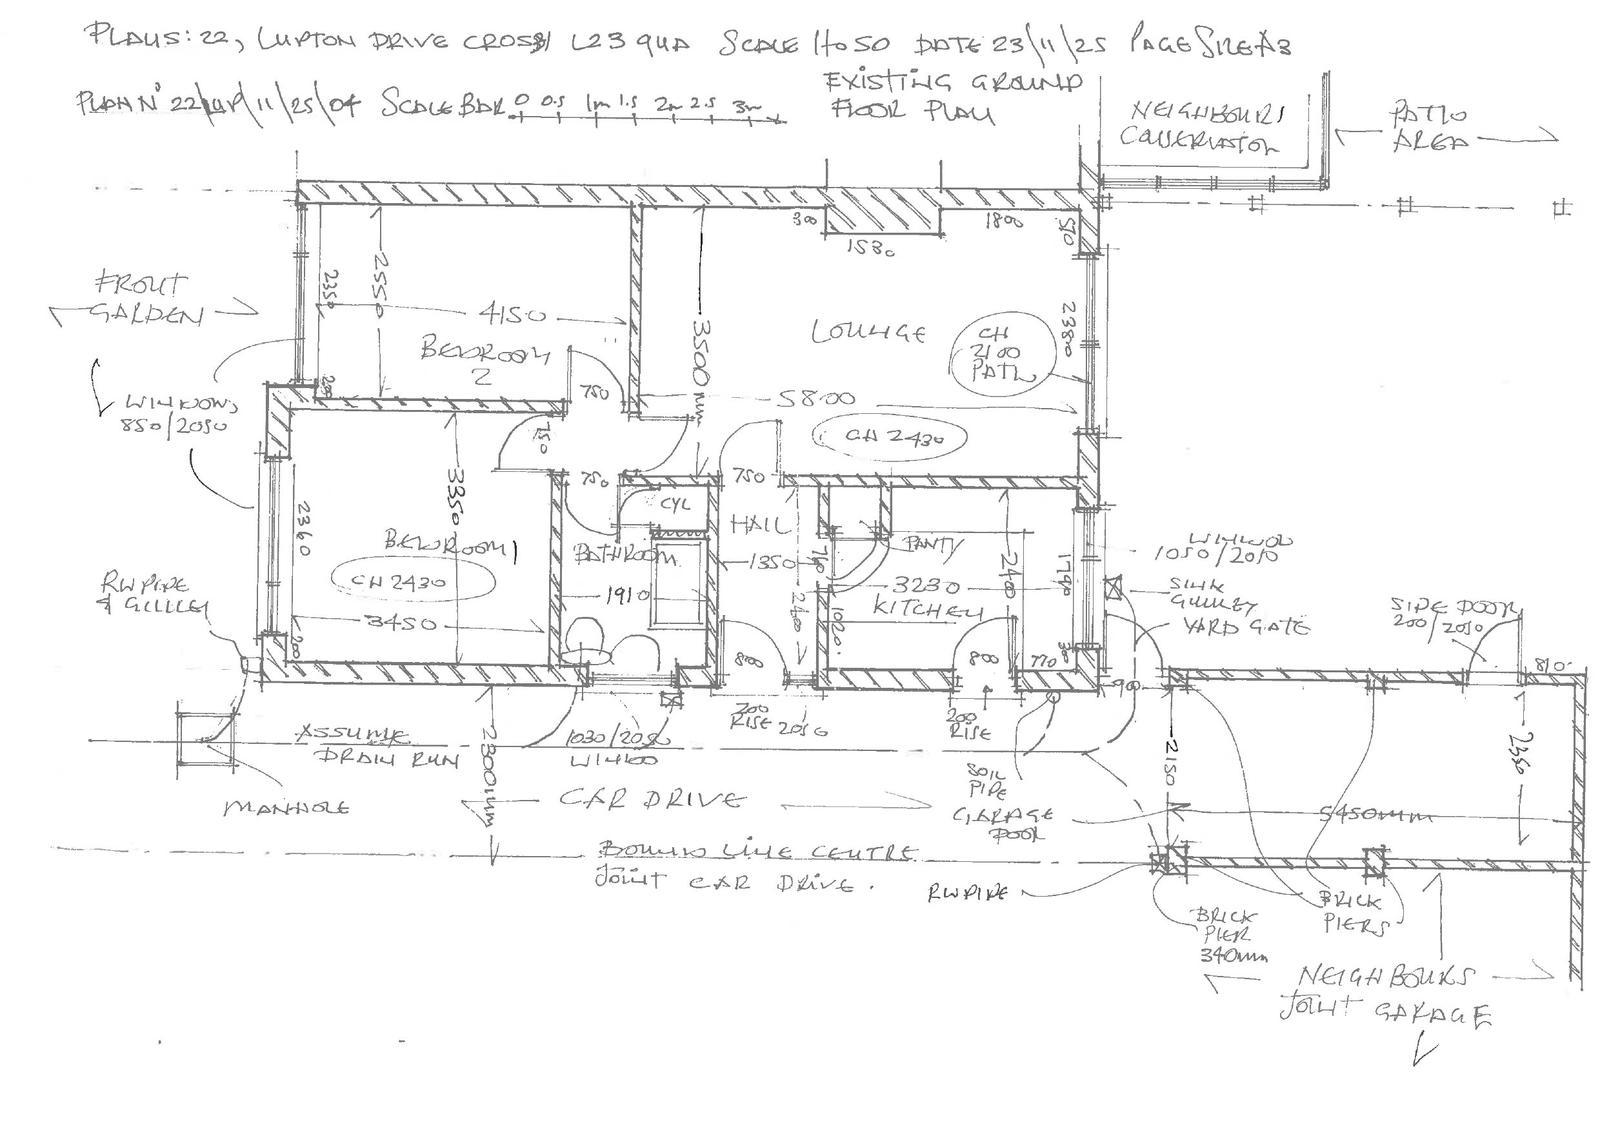 PLANS: 22, LUPTON DRIVE CROSBY L23 9UA SCALE 1 to 50 DATE 23/11/25 PAGE SIZE A3
EXISTING GROUND
FLOOR PLAN
PLAN Nº 22/LUP/11/25/04 SCALE BAR 0 0.5 1m 1.5 2m 2.5 3m
NEIGHBOURS
CONSERVATORY
PATIO
AREA
300
1530
1800
510
FRONT
GARDEN
2350
2550
4150
BEDROOM
2
3500mm
LOUNGE
CH
2100
PATIO
2380
5800
CH 2430
WINDOWS
850/2050
750
750
750
750
3350
2360
BEDROOM 1
CH 2430
3450
200
CYL
BATHROOM
1910
HALL
1350
2400
760
1020
PANTY
3230
KITCHEN
2400
1790
770
WINDOW
1050/2010
SINK
GULLEY
YARD GATE
SIDE DOOR
200/2050
810
RW PIPE
& GULLEY
ASSUME
DRAIN RUN
MANHOLE
2300mm
1030/2050
WINDOW
200
RISE
200
RISE
SOIL
PIPE
GARAGE
DOOR
CAR DRIVE
2150
2350
5450mm
BOUNDS LINE CENTRE
JOINT CAR DRIVE.
RW PIPE
BRICK
PIER
340mm
BRICK
PIERS
NEIGHBOURS
JOINT GARAGE